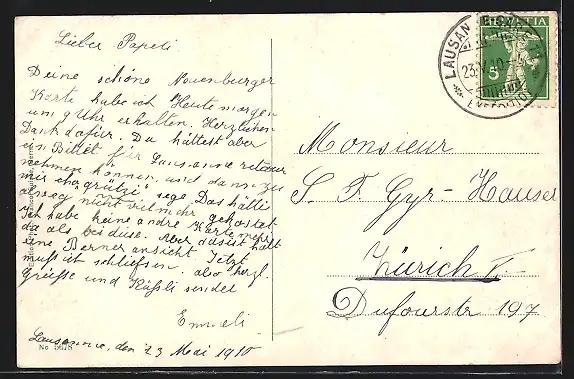 Lieber Papeli
Deine schöne Neuenburger
Karte habe ich Heute morgen
um 9 Uhr erhalten. Herzlichen
Dank dafür. Du hättest aber
ein Billet für Lausanne retour
nehmen können und dann zu
mir cho "grützi" sege. Das hätti
aweg nicht viel mehr gekostet
Ich habe keine andre Karte mehr
da als beidise. Aber das ist halt
eine Berner ansicht. Jetzt
muß ich schliessen. also herzl.
Grüsse und Küssli sendet
Emmeli.
Lausanne, den 23 Mai 1910
No 5675
HELVETIA
5
LAUSANNE
23.V.10
Monsieur
S. F. Gyr-Hauser
Zürich II.
Dufourstr 197